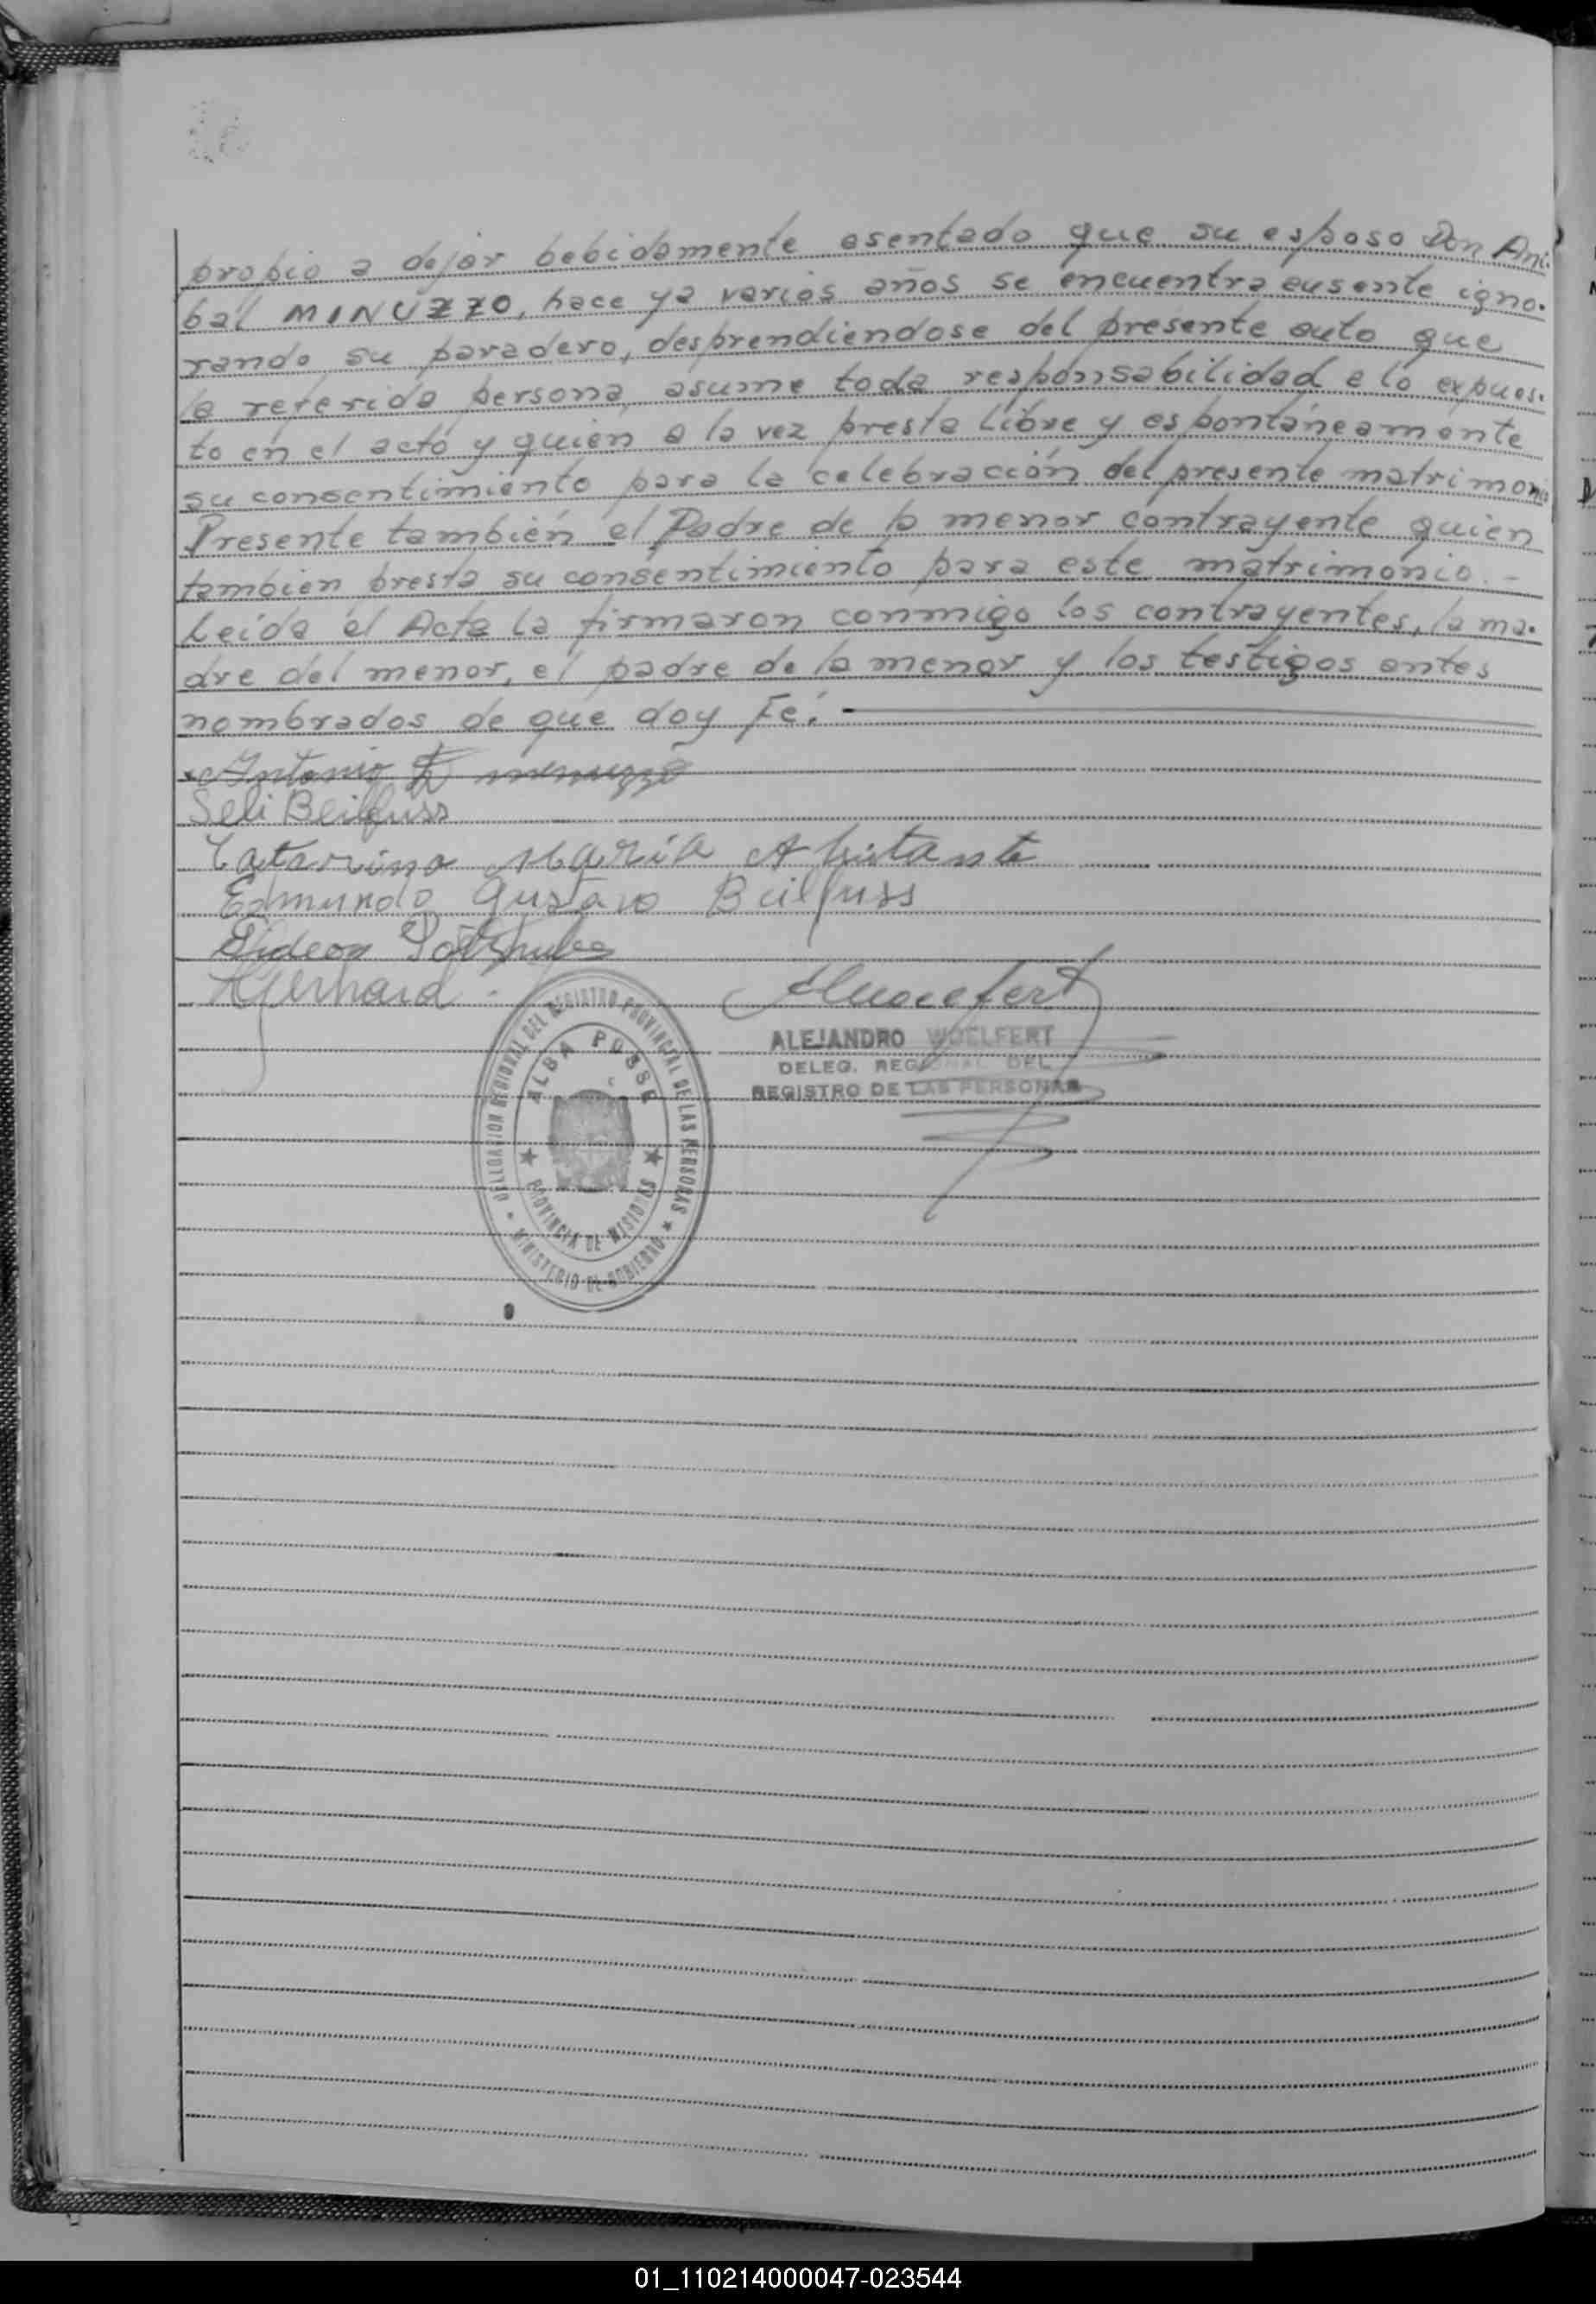 propio a dejar bebidamente asentado que su esposo Don Aní-
bal MINUZZO, hace ya varios años se encuentra ausente igno-
rando su paradero, desprendiendose del presente auto que
la referida persona, asume toda responsabilidad a lo expues-
to en el acto y quien a la vez presta libre y espontáneamente
su consentimiento para la celebración del presente matrimonio
Presente también el Padre de la menor contrayente quien
tambien presta su consentimiento para este matrimonio. -
Leida el Acta la firmaron conmigo los contrayentes, la ma-
dre del menor, el padre de la menor y los testigos antes
nombrados de que doy Fé. -
Antonio
Seli Beilfuss
Catarina Maria
Edmundo Gustavo Beilfuss
Gerhard
ALEJANDRO WOELFERT
DELEG. REGIONAL DEL
REGISTRO DE LAS PERSONAS
DELEGACION REGIONAL DEL REGISTRO PROVINCIAL DE LAS PERSONAS
ALBA POSSE
PROVINCIA DE MISIONES
MINISTERIO DE GOBIERNO
01_110214000047-023544